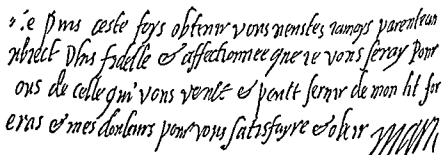 ie puis ceste foys obtenir vous neustes iamays parente
ubiect plus fidelle & affectionnee que ie vous seray pour
ous de celle qui vous veult & peult servir de mon lit for
eras & mes douleurs pour vous satisfayre & obeir